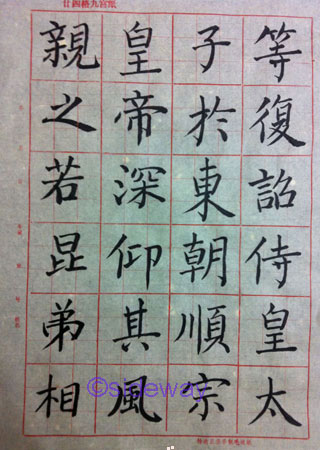 廿四格九宮紙
等復詔侍皇太
子於東朝順宗
皇帝深仰其風
親之若昆弟相
©sideway